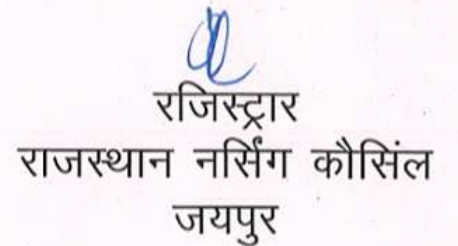 रजिस्ट्रार
राजस्थान नर्सिंग कौसिंल
जयपुर